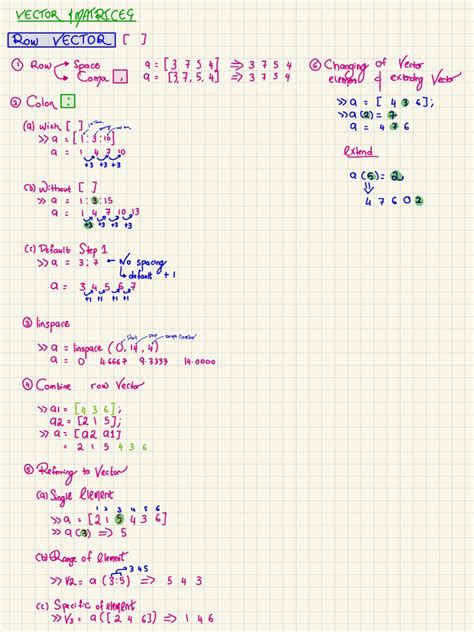 VECTOR & MATRICES
Row VECTOR [ ]
① Row → Space a = [3 7 5 4] ⇒ 3 7 5 4
→ Coma , a = [3,7,5,4] ⇒ 3 7 5 4
② Colon :
(a) With [ ]
>> a = [1:3:10]
a = 1 4 7 10
+3 +3 +3
(b) Without [ ]
>> a = 1:3:15
a = 1 4 7 10 13
+3 +3 +3 +3
(c) Default Step 1
>> a = 3:7 ← No spacing
↳ default +1
a = 3 4 5 6 7
+1 +1 +1 +1
③ linspace
>> a = linspace (0, 14, 4)
a = 0 4.6667 9.3333 14.0000
④ Combine row Vector
>> a1 = [4 3 6];
a2 = [2 1 5];
>> a = [a2 a1]
= 2 1 5 4 3 6
⑤ Referring to Vector
(a) Single Element
1 2 3 4 5 6
>> a = [2 1 5 4 3 6]
>> a(3) ⇒ 5
(b) Range of Element
3 4 5
>> V2 = a (3:5) ⇒ 5 4 3
(c) Specific of element
>> V3 = a([2 4 6]) ⇒ 1 4 6
⑥ Changing of Vector
element & extending Vector
>> a = [4 3 6];
>> a(2) = 7
a = 4 7 6
Extend
a(5) = 2
⇓
4 7 6 0 2